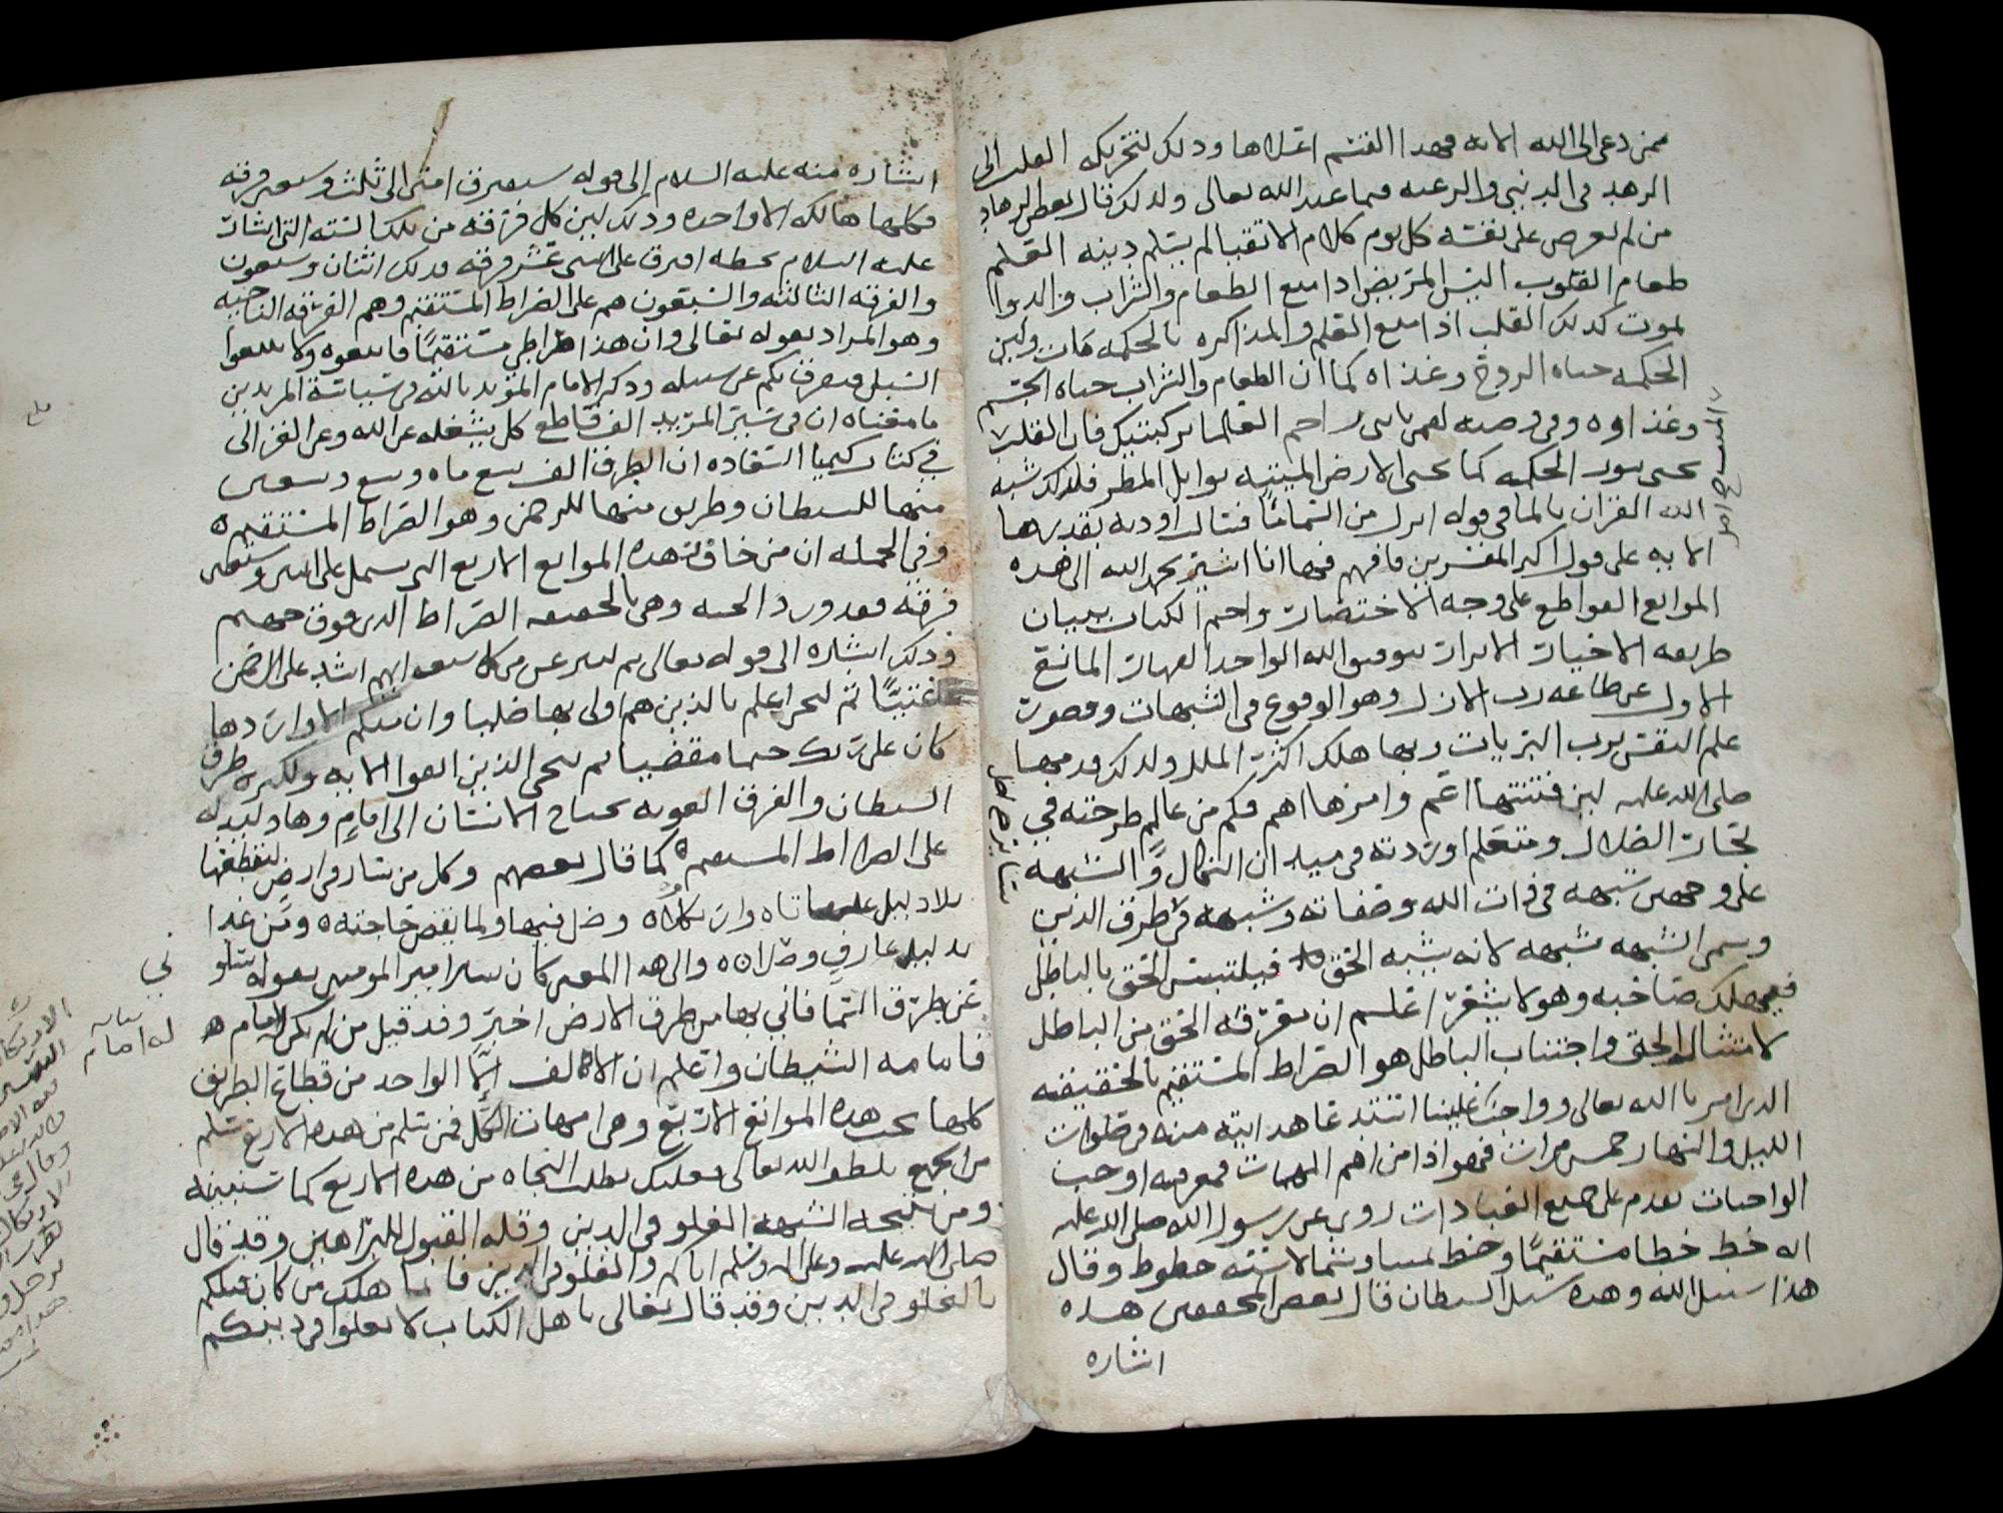 ممن دعى الى الله الايه فهذا القسم اعلاها وذلك لتحريكه القلب الى
الزهد في الدنيى والرغبه فيما عند الله تعالى ولذلك قال بعض الزهاد
من لم يعرض على نفسه كل يوم كلام الاتقيا لم يسلم دينه العلم
طعام القلوب اليس المريض اذا منع الطعام والشراب والدوا
يموت كذلك القلب اذا منع العلم والمذاكره بالحكمه مات ولين
الحكمه حياه الروح وغذاه كما ان الطعام والشراب حياه الجسم
وغذاوه وفي وصيه لقمن يابني زاحم العلما بركبتيك فان القلب
يحيى بنور الحكمه كما يحيى الارض الميتيه بوابل المطر فلذلك شبه
الله القران بالما في قوله انزل من السما ماً فسالت اوديه بقدرها
الايه على قول اكبر المفسرين فافهم فها انا اشير بحمد الله الى هذه
الموانع القواطع على وجه الاختصار واختم الكتاب ببيان
طريقه الاخيار الابرار بتوفيق الله الواحد القهار المانع
الاول عن طاعه رب الازل وهو الوقوع في الشبهات وقصور
علم النفس برب البريات وبها هلك اكثر الملل ولذلك قدمها
صلى الله عليه لين فتنتها اعم وامرها اهم فكم من عالم طرحته في
بحار الضلال ومتعلم اوردته في ميدان النكال والشبهه
على وجهين شبهه في ذات الله وصفاته وشبهه في طرف الدين
وسمى الشبهه شبهه لانه يشبه الحق فيلتبس الحق بالباطل
فيهلك صاحبه وهو لا يشعر اعلم ان معرفه الحق من الباطل
لامتثال الحق واجتناب الباطل هو الصراط المستقيم بالحقيقه
الذي امر بالله تعالى وواجب علينا استدعا هدايته منه في صلوات
الليل والنهار خمس مرات فهو اذا من اهم المهمات فمعرفته اوجب
الواجبات تقدم على جميع العبادات روي عن رسول الله صلى الله عليه
انه خط خطا مستقيمًا وخط يمينا وشمالا سته خطوط وقال
هذا سبيل الله وهذه سبل الشيطان قال بعض المحققين هذه
اشاره
اشاره منه عليه السلام إلى قوله ستفترق امتى الى ثلث وسبعين فرقه
فكلها هالكه الا واحده وذلك لين كل فرقه من تلك السته التي اشار
عليه السلام بخطه افترق على اثنى عشر فرقه فذلك اثنان وسبعون
والفرقه الثالثه والسبعون هم على الصراط المستقيم وهم الفرقه الناجيه
وهو المراد بقوله تعالى وان هذا صراطي مستقيمًا فاتبعوه ولا تتبعوا
السبل فتفرق بكم عن سبيله وذكر الامام المويد بالله في سياسة المريدين
ما معناه ان في سير المريد الف قاطع كل يشغله عن الله وعن الغزالى
في كتاب كيميا السعاده ان الطرق الف تسع مايه وتسع وتسعين
منها للشيطان وطريق منها للرحمن وهو الصراط المستقيم
وفي الجمله ان من خاف هذه الموانع الاربع التي تشمل على اثنين وسبعين
فرقه فقد ورد الجنه وهي بالحقيقه الصراط الذي فوق جهنم
وذلك اشاره الى قوله تعالى ثم لننزعن من كل شيعه ايهم اشد على الرحمن
عتيًّا ثم لنحن اعلم بالذين هم اولى بها صليا وان منكم الا واردها
كان على ربك حتما مقضيا ثم ننجى الذين اتقوا الايه ولكثره طرق
الشيطان والفرق الغويه يحتاج الانسان الى امامٍ وهاد ليدله
على الصراط المستقيم كما قال بعضهم وكل من سار في ارض ليقطعها
بلا دليل عليها تاه وارتكلاه وضل فيها ولما يقض حاجته ومن غدا
بدليل عارفٍ وصلا والى هذا المعنى كان يشير امير المومنين بقوله سلو
ني
عن طرق السما فاني بها من طرق الارض اخبر وقد قيل من لم يكن له امام
فامامه الشيطان واعلم ان الالف الا الواحد من قطاع الطريق
كلها تحت هذه الموانع الاربع وهي امهات الكل فمن سلم من هذه الاربع سلم
من الجميع بلطف الله تعالى فعليك بطلب النجاه من هذه الاربع كما سنبينه
ومن نتيجه الشبهه الغلو في الدين وقله القبول للبراهين وقد قال
صلى الله عليه وعلى اله وسلم اياكم والغلو في الدين فانما هلك من كان قبلكم
بالغلو في الدين وقد قال تعالى ياهل الكتاب لا تغلوا في دينكم